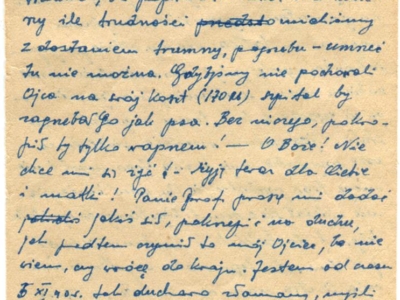 ny ile trudności mieliśmy
z dostaniem trumny, pogrzebu – umrzeć
tu nie można. Gdybyśmy nie pochowali
Ojca na swój koszt (170 M) szpital by
zagrzebał Go jak psa. Bez niczego, pokro-
piś ty tylko wapnem! — O Boże! Nie
chce mi się żyć! – Żyję teraz dla Ciebie
i matki! Panie Prof. proszę mi dodać
jakiś sił, pokrzepić na duchu,
jak przedtem czynił to mój Ojciec, bo nie
wiem, czy wrócę do kraju. Jestem od czasu
5 XI. 40 r. tak duchowo złamany, myśli